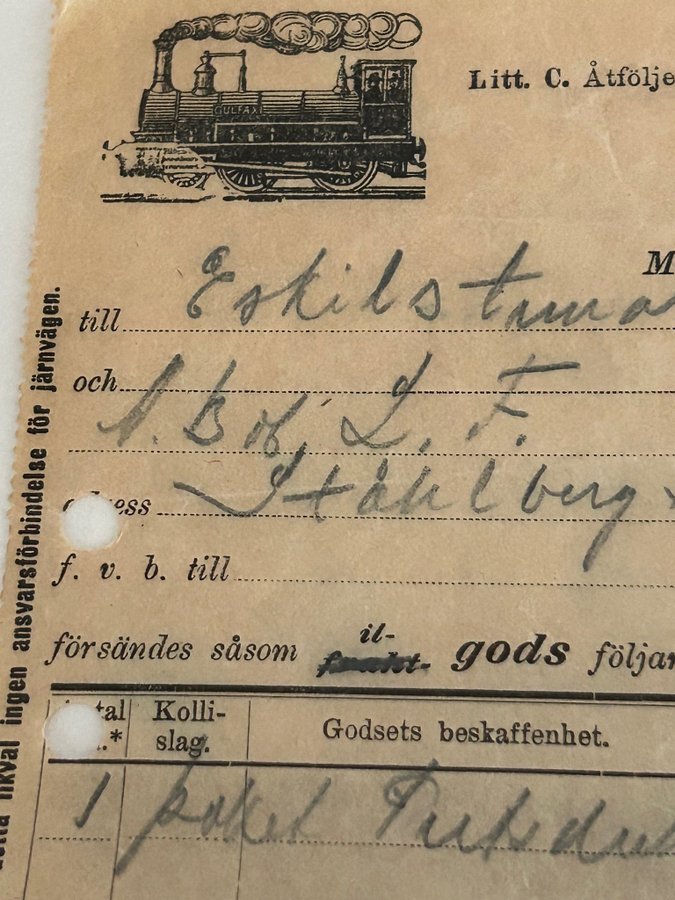 GULFAXI
Litt. C. Åtfölje
M
till Eskilstuna
och
A. Bol. L. F.
Ståhlberg &
adress
f. v. b. till
försändes såsom il-
frakt- gods följan
Kolli-
slag.
Godsets beskaffenhet.
1 paket
detta likväl ingen ansvarsförbindelse för järnvägen.